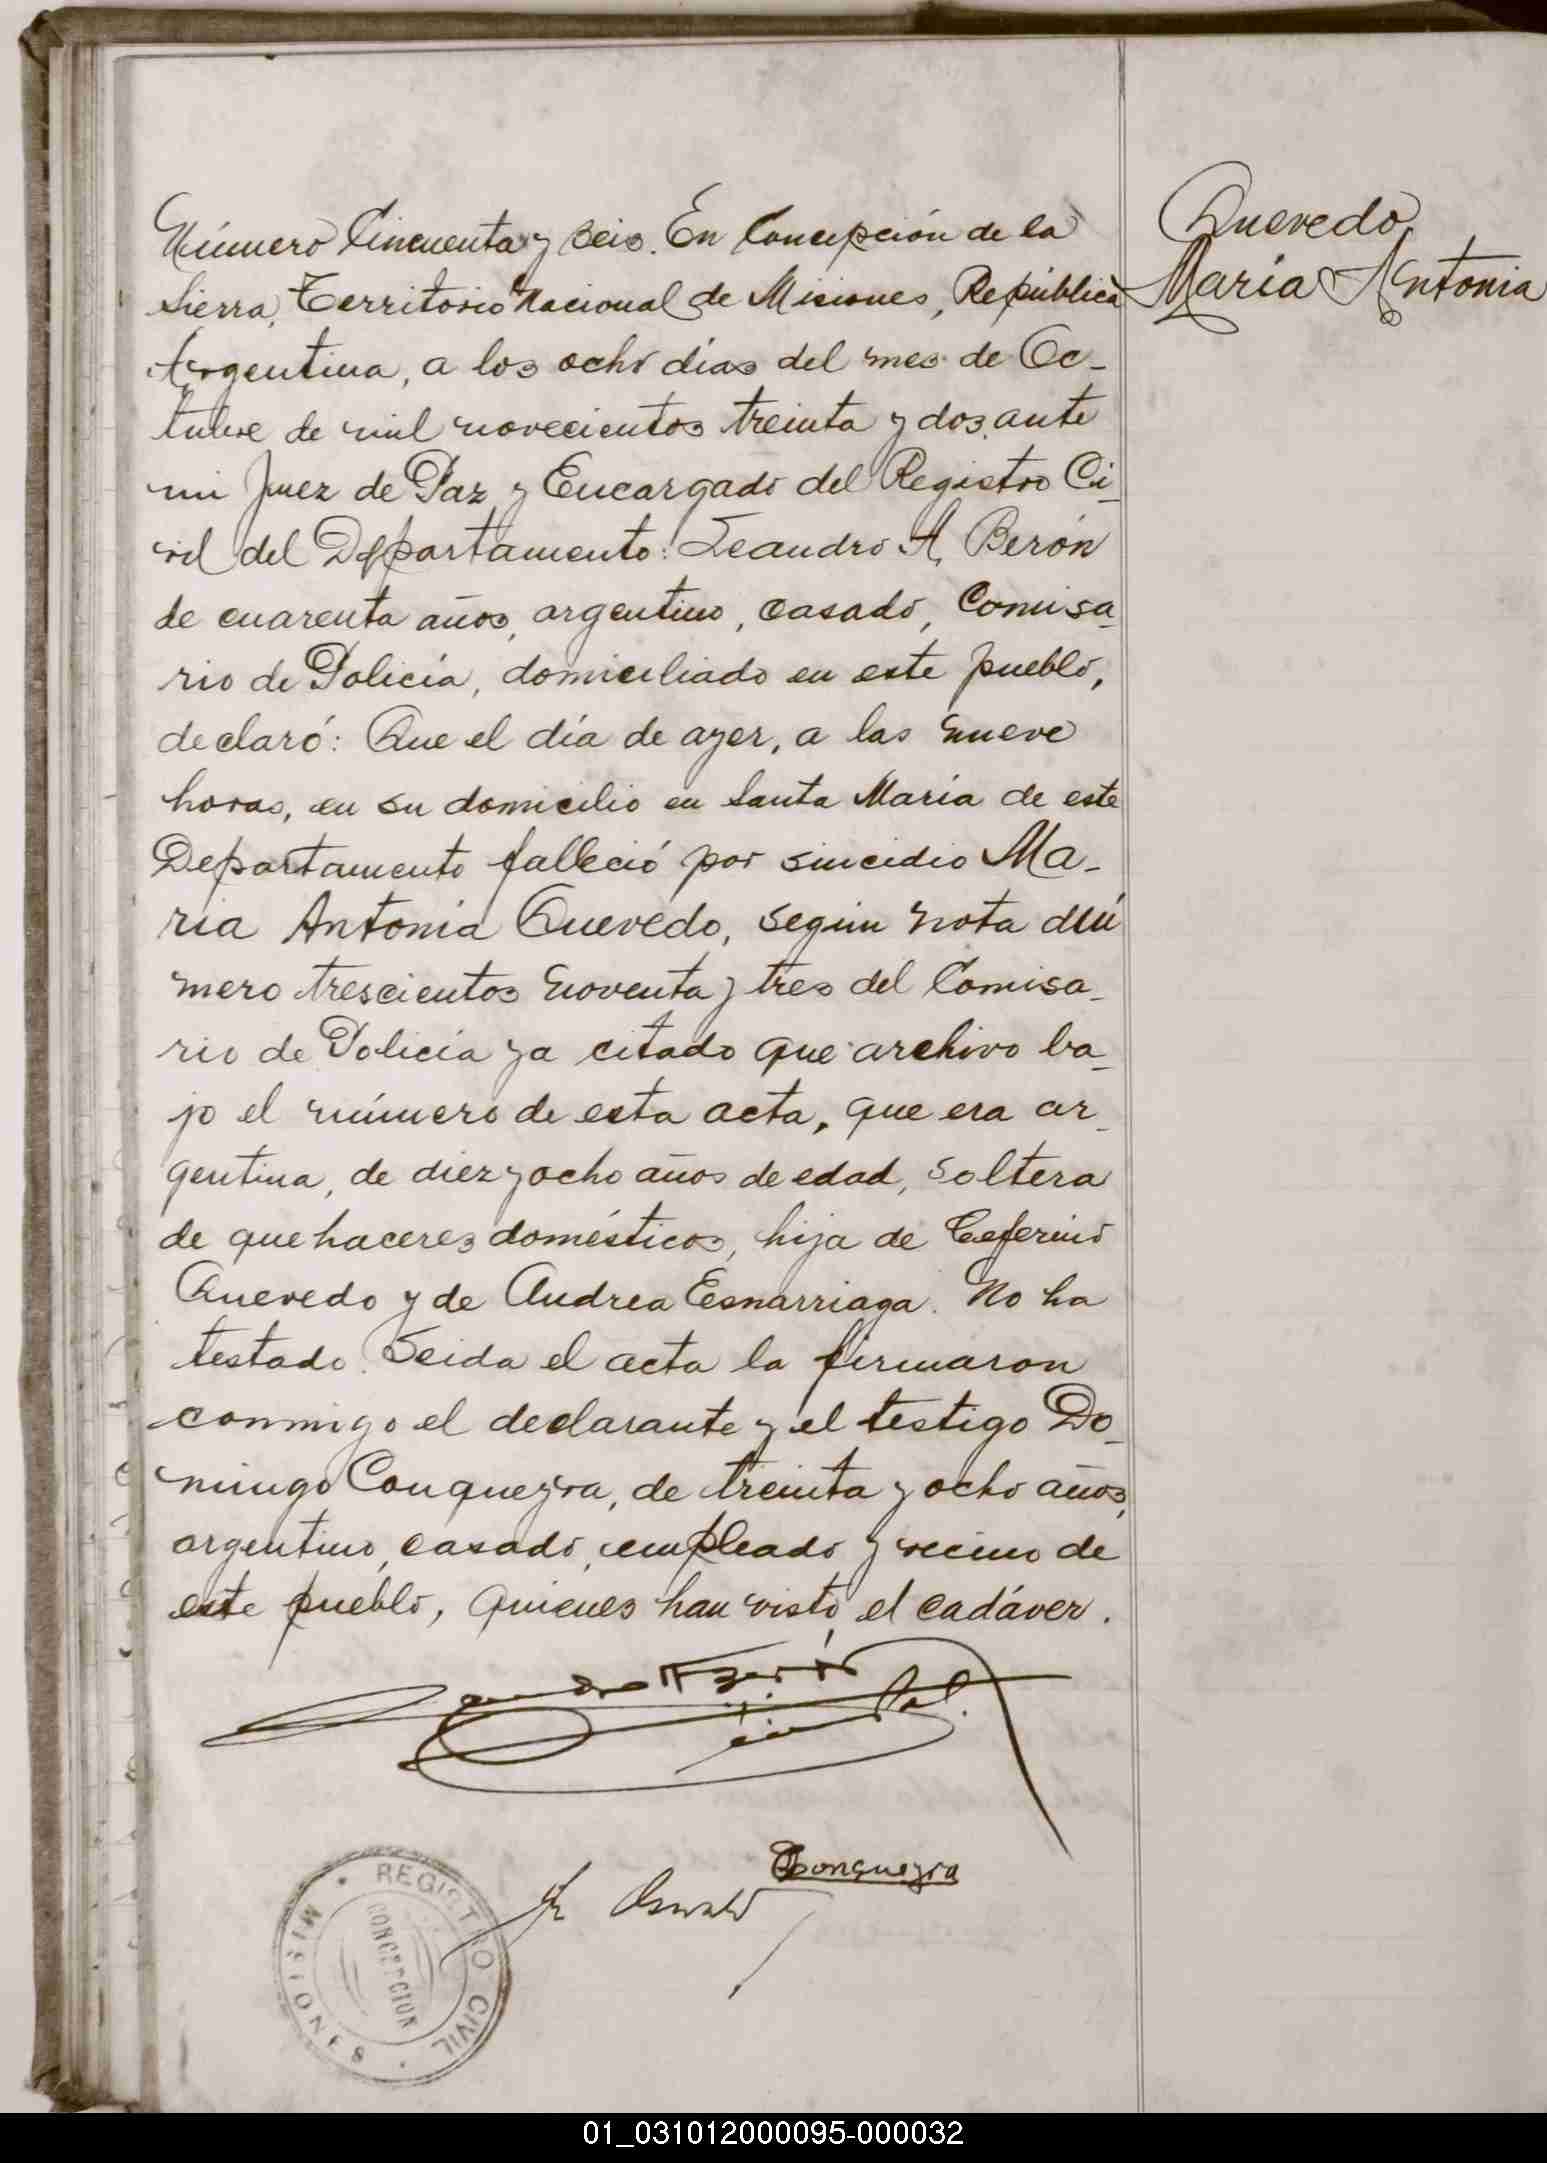 Número Cincuenta y seis. En Concepción de la
Sierra, Territorio Nacional de Misiones, República
Argentina, a los ocho días del mes de Oc-
tubre de mil novecientos treinta y dos, ante
mi Juez de Paz y Encargado del Registro Ci-
vil del Departamento: Leandro A. Berón
de cuarenta años, argentino, casado, Comisa-
rio de Policía, domiciliado en este pueblo,
declaró: Que el día de ayer, a las nueve
horas, en su domicilio en Santa María de este
Departamento falleció por suicidio Ma-
ria Antonia Quevedo, según nota Nú
mero trescientos noventa y tres del Comisa-
rio de Policía ya citado que archivo ba-
jo el número de esta acta, que era ar-
gentina, de diez y ocho años de edad, soltera
de quehaceres domésticos, hija de Ceferino
Quevedo y de Andrea Esnarriaga. No ha
testado. Leida el acta la firmaron
conmigo el declarante y el testigo Do-
mingo Conqueyra, de treinta y ocho años,
argentino, casado, empleado y vecino de
este pueblo, quienes han visto el cadáver.
Quevedo
María Antonia
Conqueyra
Oswald
REGISTRO CIVIL
CONCEPCION
MISIONES
01_031012000095-000032